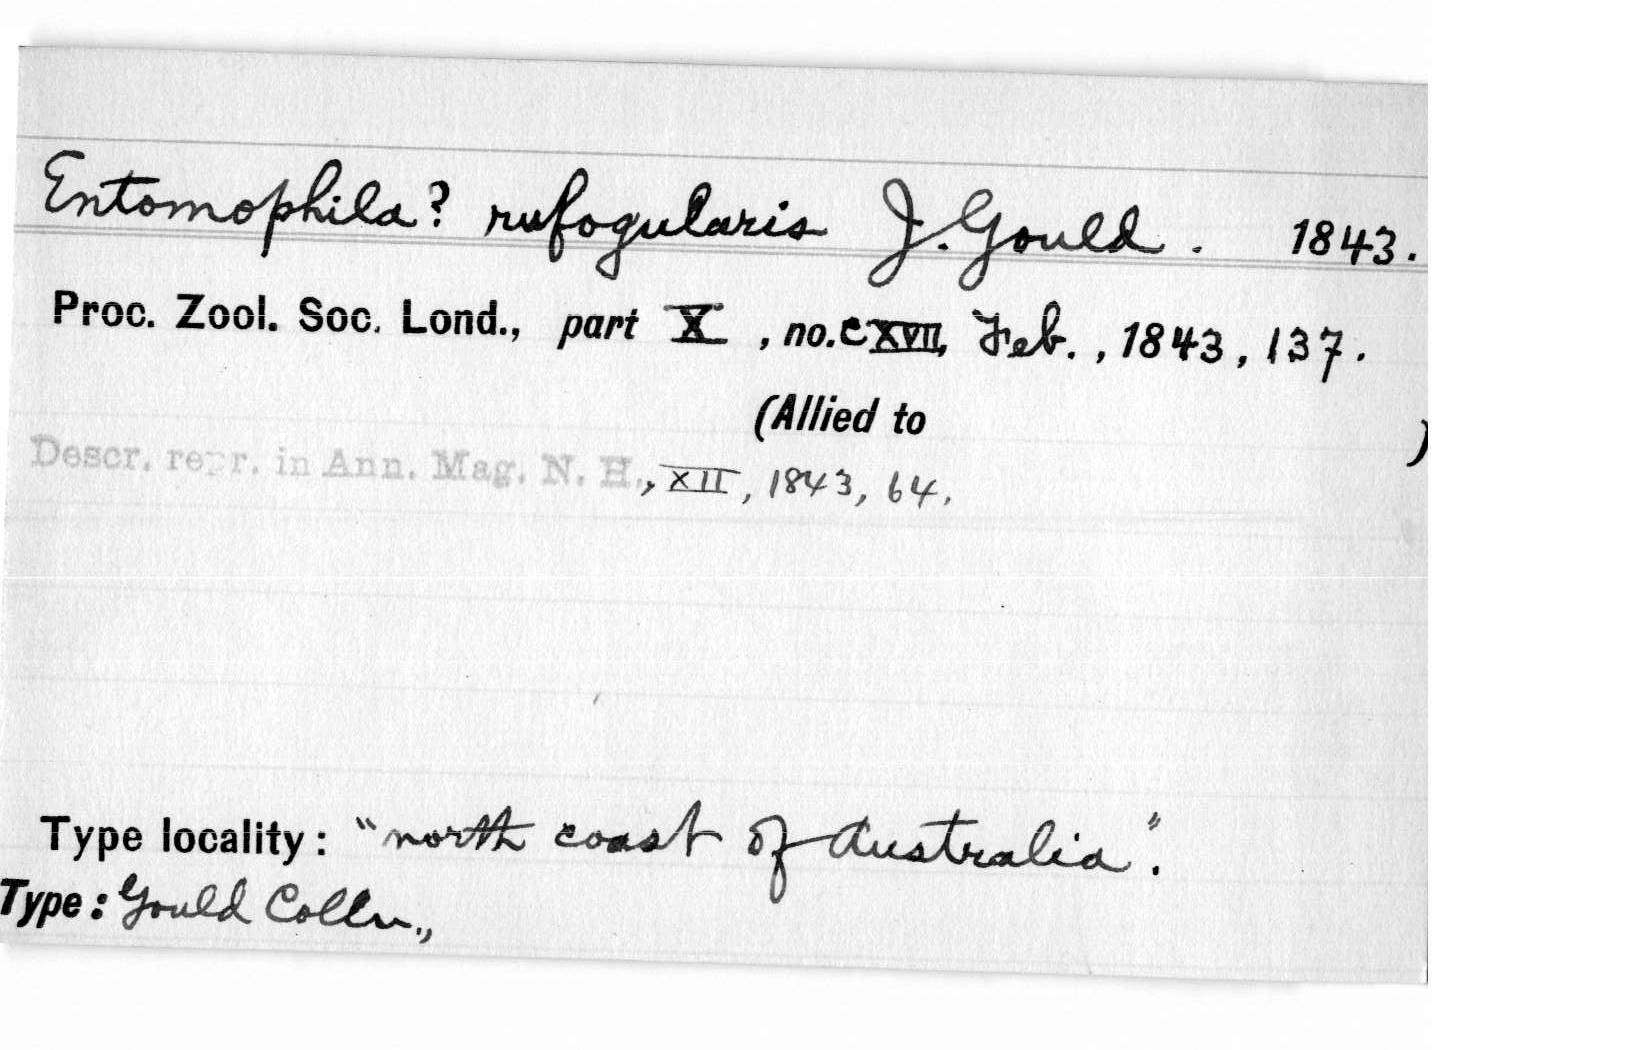 Entomophila? rufogularis J. Gould. 1843.
Proc. Zool. Soc. Lond., part X, no. CXVII, Feb., 1843, 137.
(Allied to )
Descr. repr. in Ann. Mag. N. H., XII, 1843, 64.
Type locality: "north coast of Australia".
Type: Gould Colln.,